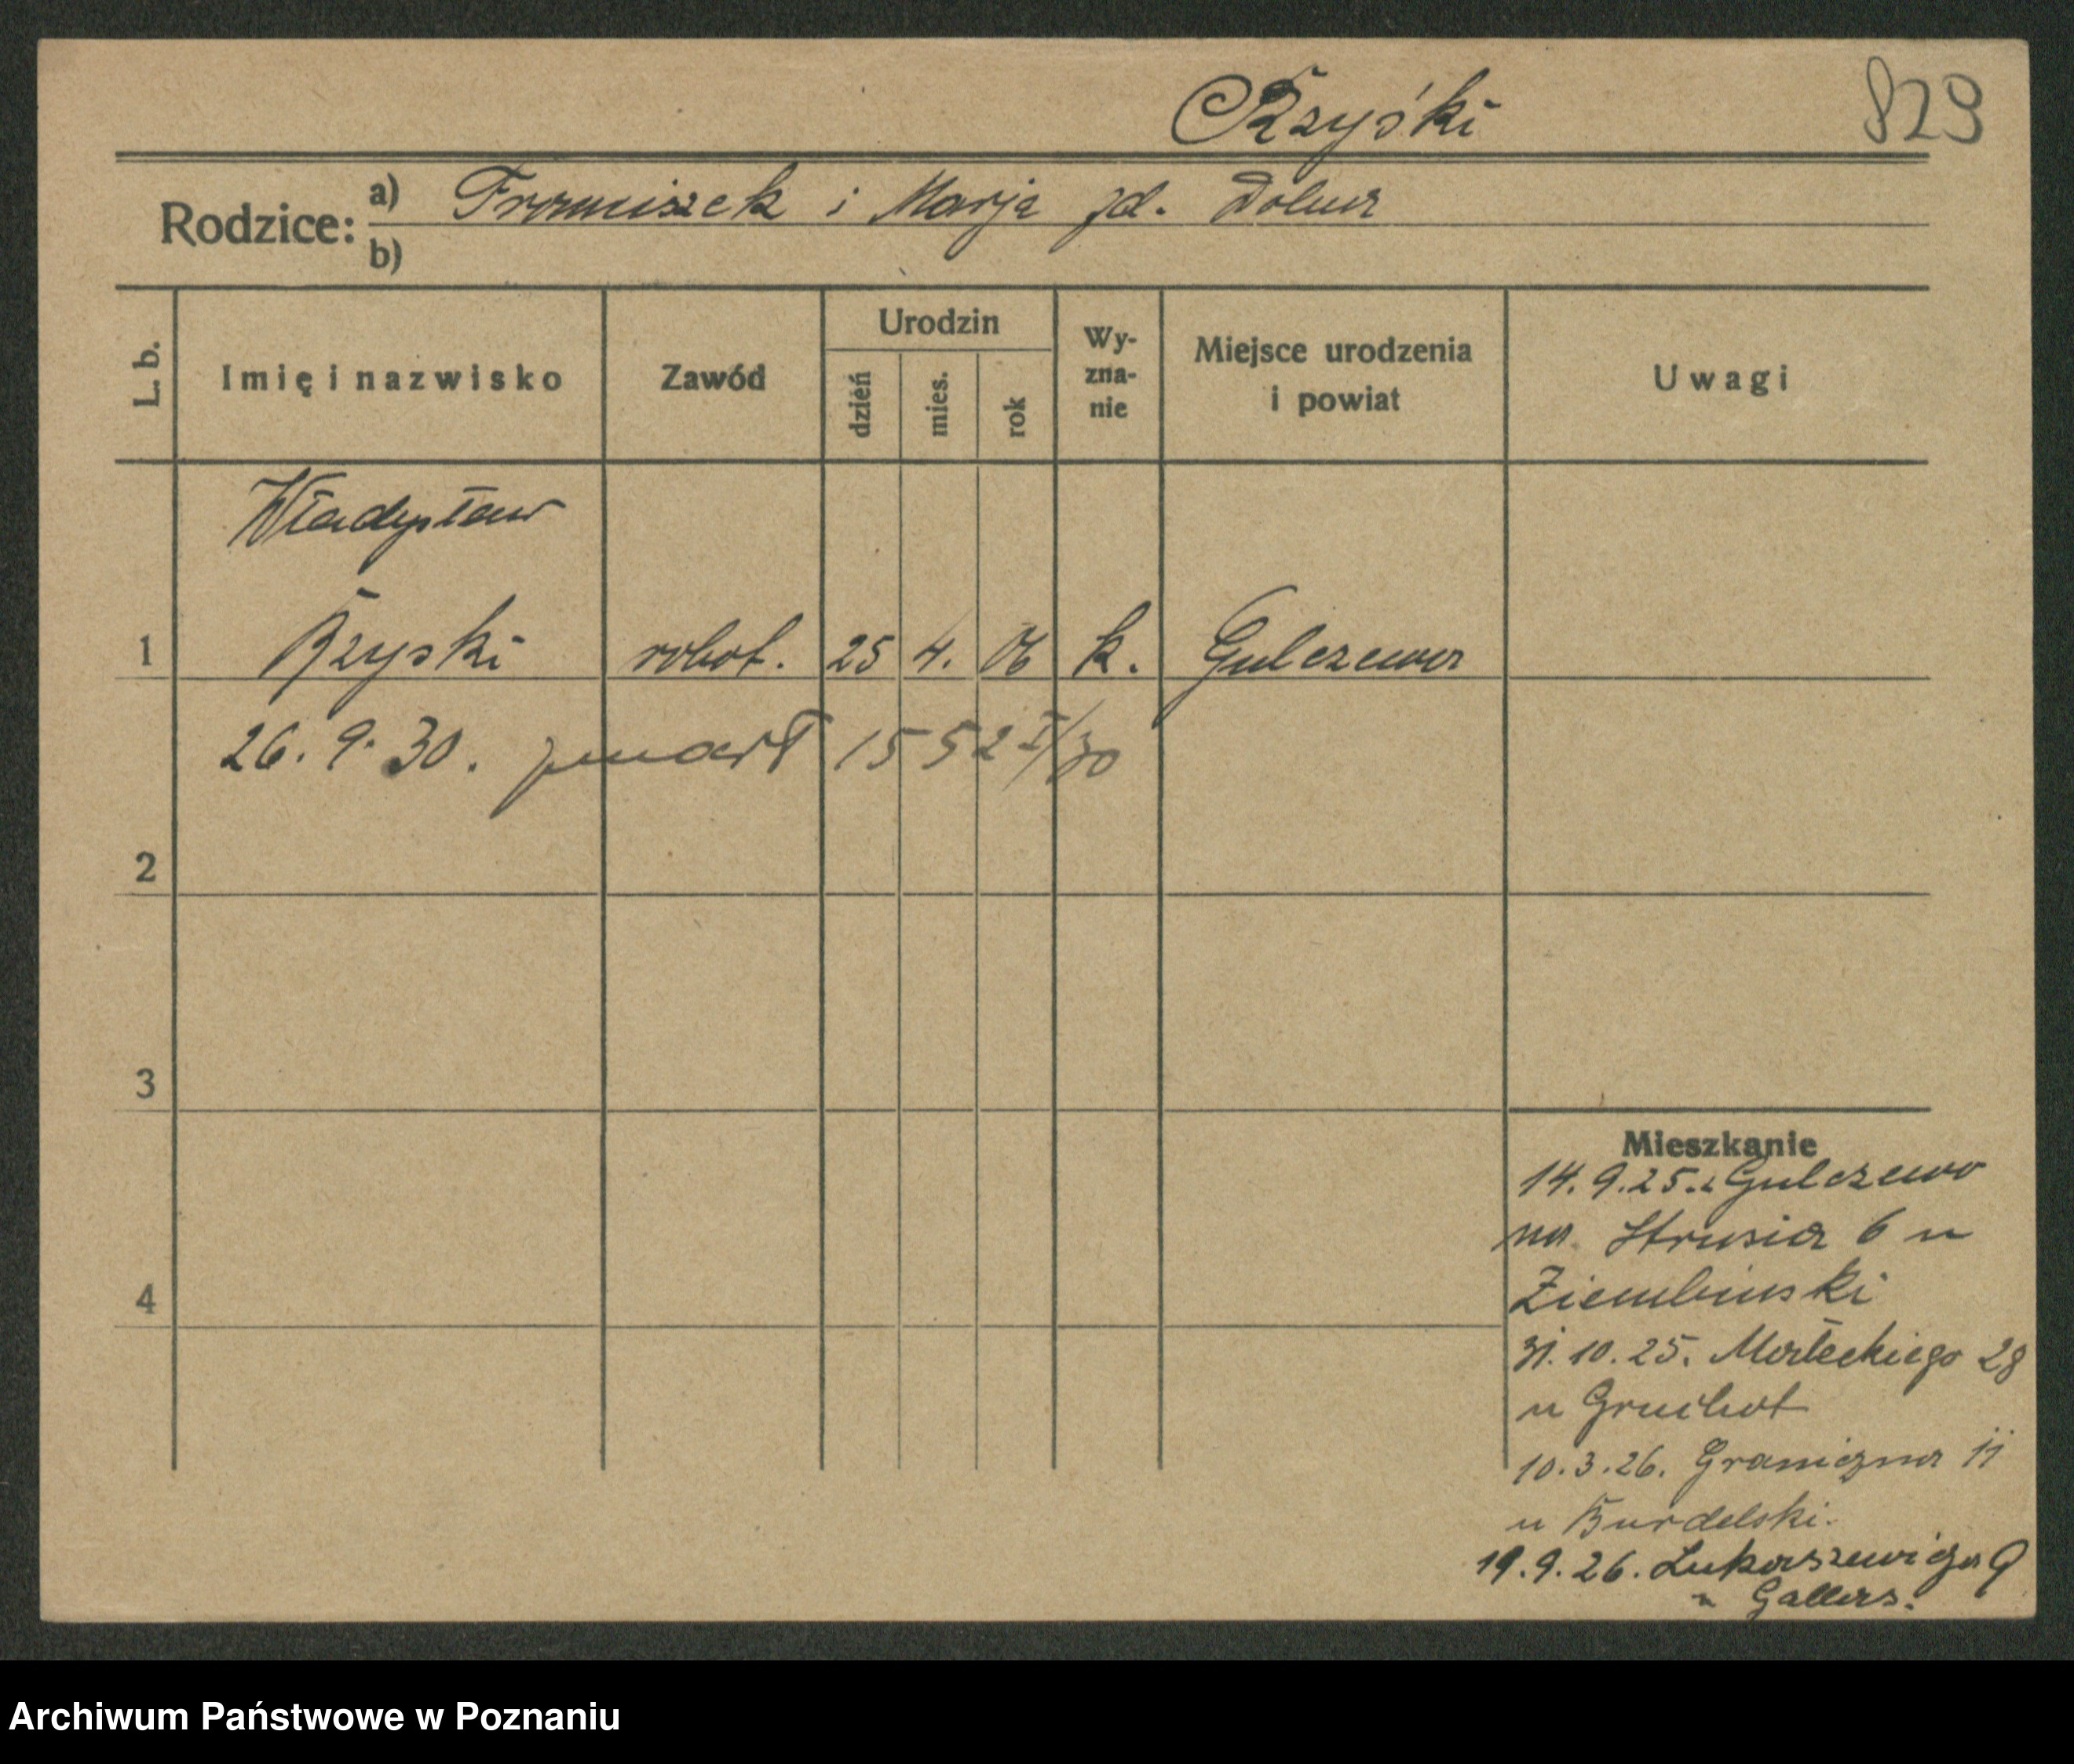 Rzyski
829
Rodzice: a) Franciszek i Marja zd. Dolna
b)
L. b. Imię i nazwisko Zawód Urodzin dzień mies. rok Wy-zna-nie Miejsce urodzenia i powiat Uwagi
Władysław
1 Rzyski robot. 25 4. 06 k. Gulczewo
26. 9. 30. zmarł 1552 I/30
2
3
4
Mieszkanie
14. 9. 25. z Gulczewo
na Strusia 6 u
Ziembinski
31. 10. 25. Małeckiego 28
u
10. 3. 26. Graniczna 11
u Burdelski.
19. 9. 26. Łukaszewicza 9
u Gallas.
Archiwum Państwowe w Poznaniu